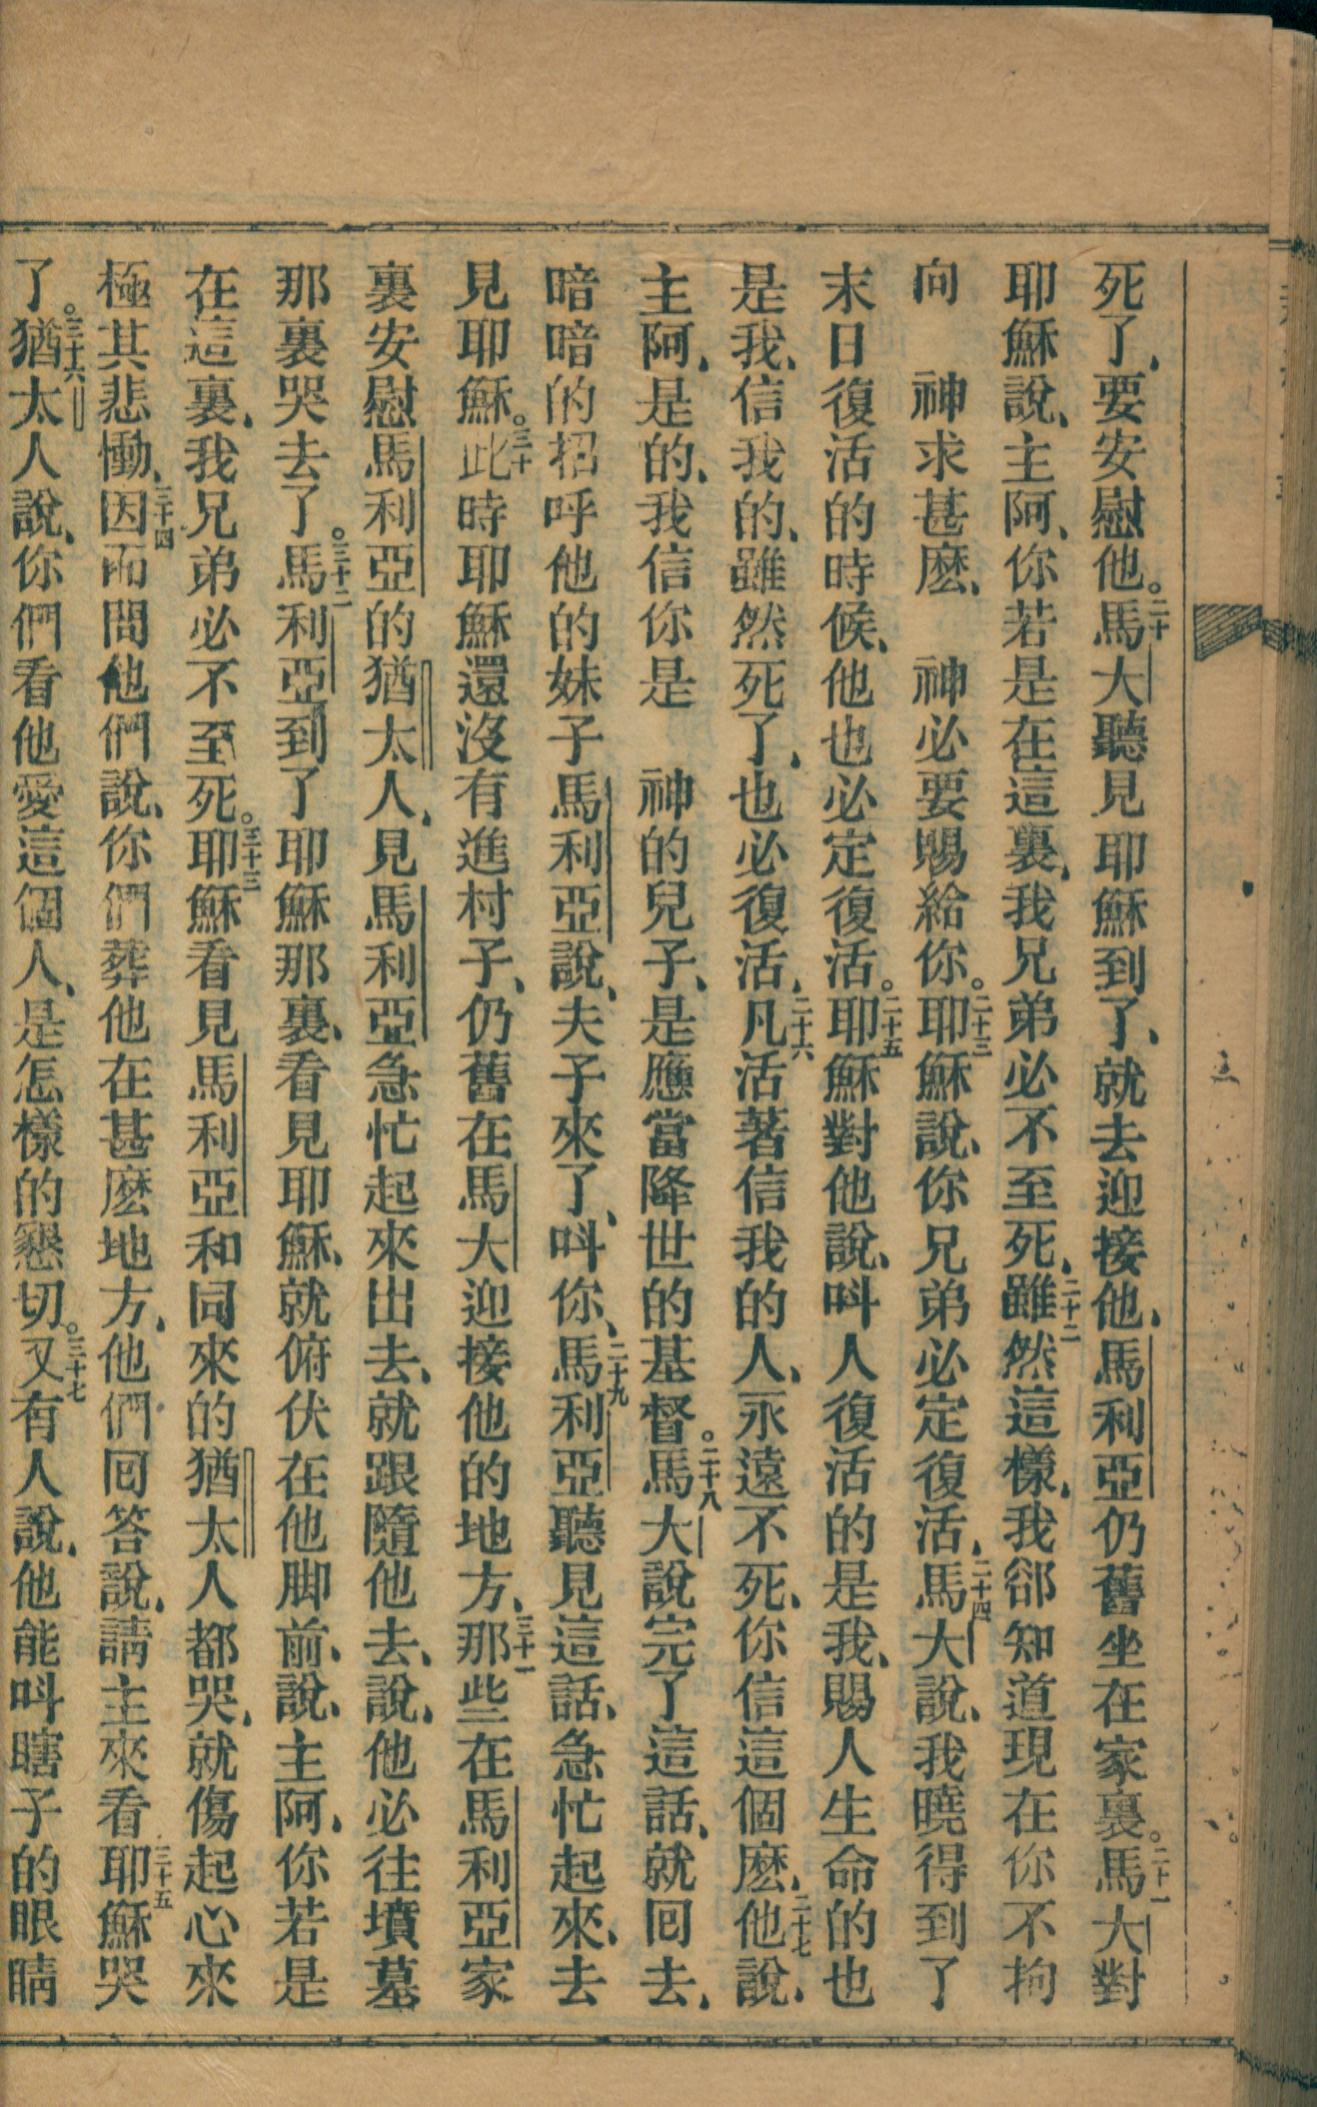 死了、要安慰他。二十馬大聽見耶穌到了、就去迎接他、馬利亞仍舊坐在家裏。二十一馬大對
耶穌說、主阿、你若是在這裏、我兄弟必不至死、二十二雖然這樣、我郤知道現在你不拘
向　神求甚麽、　神必要賜給你。二十三耶穌說、你兄弟必定復活、二十四馬大說、我曉得到了
末日復活的時候、他也必定復活。二十五耶穌對他說、呌人復活的是我、賜人生命的也
是我、信我的、雖然死了、也必復活、二十六凡活著信我的人、永遠不死、你信這個麽、二十七他說、
主阿、是的、我信你是　神的兒子、是應當降世的基督。二十八馬大說完了這話、就回去、
暗暗的招呼他的妹子馬利亞說、夫子來了、呌你、二十九馬利亞聽見這話、急忙起來、去
見耶穌。三十此時耶穌還沒有進村子、仍舊在馬大迎接他的地方、三十一那些在馬利亞家
裏安慰馬利亞的猶太人、見馬利亞急忙起來出去、就跟隨他去、說、他必往墳墓
那裏哭去了。三十二馬利亞到了耶穌那裏、看見耶穌、就俯伏在他脚前、說、主阿、你若是
在這裏、我兄弟必不至死。三十三耶穌看見馬利亞和同來的猶太人都哭、就傷起心來
極其悲慟、三十四因而問他們說、你們葬他在甚麽地方、他們回答說、請主來看三十五耶穌哭
了。三十六猶太人說、你們看他愛這個人、是怎樣的懇切。三十七又有人說、他能呌瞎子的眼睛